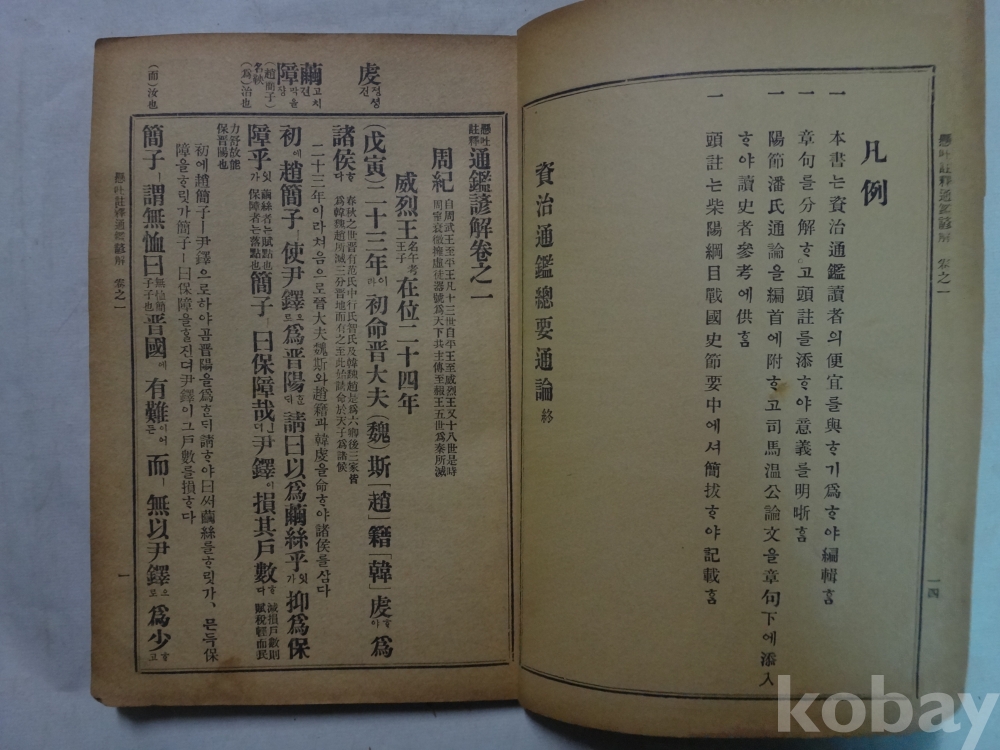 凡例
一 本書는資治通鑑讀者의便宜를與ᄒᆞ기爲ᄒᆞ야編輯홈
一 章句를分解ᄒᆞ고頭註를添ᄒᆞ야意義를明晰홈
一 陽節潘氏通論을編首에附ᄒᆞ고司馬溫公論文을章句下에添入
ᄒᆞ야讀史者參考에供홈
一 頭註는紫陽綱目戰國史節要中에셔簡拔ᄒᆞ야記載홈
資治通鑑總要通論 終
懸吐註釋通鑑諺解 卷之一
一四
懸吐註釋 通鑑諺解卷之一
周紀 自周武王至平王凡十三世自平王至威烈王又十八世是時
周室衰微擁虛徒器號爲天下共主傳至赧王五世爲秦所滅
威烈王 名午考王子 在位二十四年
虔 정성건
(戊寅)二十三年이라初命晋大夫(魏)斯「趙」籍「韓」虔ᄒᆞ야爲
諸侯ᄒᆞ다 春秋之世晋有范氏中行氏智氏及韓魏趙是爲六卿後三家皆
爲韓魏趙所滅三分晋地而有之至此始請命於天子爲諸侯
二十三年이라처음으로晉大夫魏斯와趙籍과韓虔을命ᄒᆞ야諸侯를삼다
繭 고치견
障 막을장
初에趙簡子ㅣ使尹鐸으로爲晋陽ᄒᆞᆫ대請曰以爲繭絲乎잇가抑爲保
(趙簡子)名鞅
(爲)治也
障乎잇가 繭絲者는賦點也保障者는落點也 簡子ㅣ曰保障哉인뎌尹鐸이損其戶數ᄒᆞ다 減損戶數則賦稅輕而民
力舒故能保晋陽也
初에趙簡子ㅣ尹鐸으로하야곰晋陽을爲ᄒᆞᆫ뒤請ᄒᆞ야曰써繭絲를ᄒᆞ릿가、믄득保
障을ᄒᆞ릿가簡子ㅣ曰保障을ᄒᆞᆯ진뎌尹鐸이그戶數를損ᄒᆞ다
(而)汝也
簡子ㅣ謂無恤曰 無恤簡子子也 晋國에有難이어든而ㅣ無以尹鐸으로爲少ᄒᆞ고
懸吐註釋通鑑諺解 卷之一
一
kobay